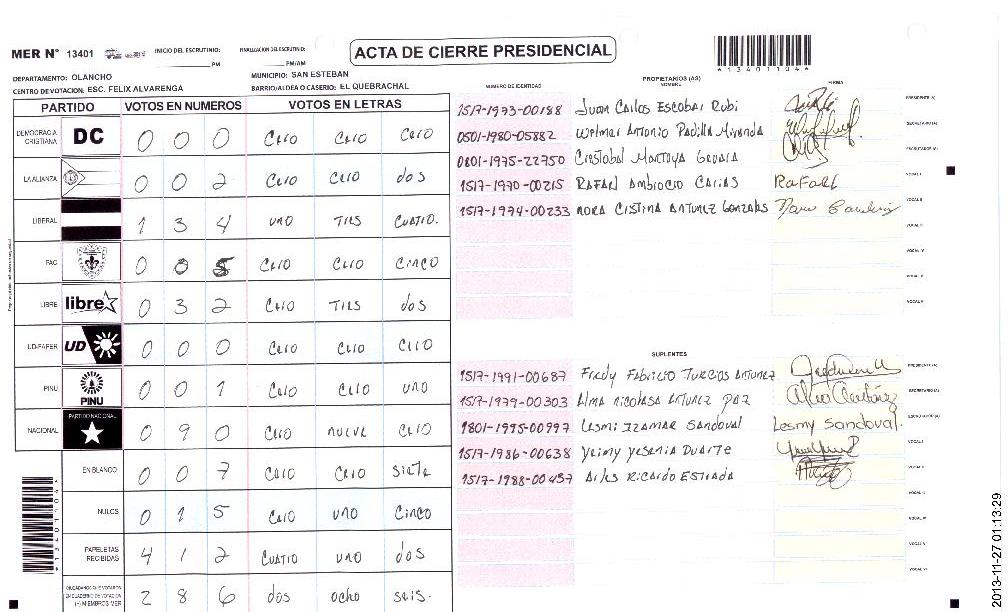 MER N° 13401 INICIO DEL ESCRUTINIO: PM FINALIZACION DEL ESCRUTINIO: PM/AM ACTA DE CIERRE PRESIDENCIAL
*13401104*
DEPARTAMENTO: OLANCHO MUNICIPIO: SAN ESTEBAN
CENTRO DE VOTACION: ESC. FELIX ALVARENGA BARRIO/ALDEA O CASERIO: EL QUEBRACHAL
PARTIDO VOTOS EN NUMEROS VOTOS EN LETRAS
DEMOCRACIA CRISTIANA DC 0 0 0 CERO CERO CERO
LA ALIANZA 0 0 2 CERO CERO dos
LIBERAL 1 3 4 UNO TRES CUATRO.
PAC 0 0 5 CERO CERO CINCO
LIBRE libre 0 3 2 CERO TRES dos
UD-FAPER UD 0 0 0 CERO CERO CERO
PINU PINU 0 0 1 CERO CERO UNO
NACIONAL PARTIDO NACIONAL 0 9 0 CERO NUEVE CERO
EN BLANCO 0 0 7 CERO CERO SIETE
NULOS 0 1 5 CERO UNO CINCO
PAPELETAS RECIBIDAS 4 1 2 CUATRO UNO dos
CIUDADANOS QUE VOTARON EN CUADERNO DE VOTACION (+) MIEMBROS MER 2 8 6 dos ocho seis.
PROPIETARIOS (AS)
NUMERO DE IDENTIDAD NOMBRE FIRMA
1517-1973-00188 Juan Carlos Escobar Rubi PRESIDENTE (A)
0501-1980-05882 Wilmer Antonio Padilla Miranda SECRETARIO (A)
0801-1975-22750 Cristobal Montoya ESCRUTADOR (A)
1517-1970-00215 RAFAEL AMBROCIO CARIAS RAFAEL VOCAL I
1517-1974-00233 NORA CRISTINA ANTUNEZ GONZALES VOCAL II
SUPLENTES
1517-1991-00687 Fredy Fabricio TURCIOS ANTUNEZ PRESIDENTE (A)
1517-1979-00303 ALMA NICOLASA ANTUNEZ PAZ SECRETARIO (A)
1801-1975-00997 LESMI IZAMAR SANDOVAL Lesmy Sandoval. ESCRUTADOR (A)
1517-1986-00638 YEIMY YESENIA DUARTE VOCAL I
1517-1988-00457 RICARDO ESTRADA VOCAL II
2013-11-27 01:13:29